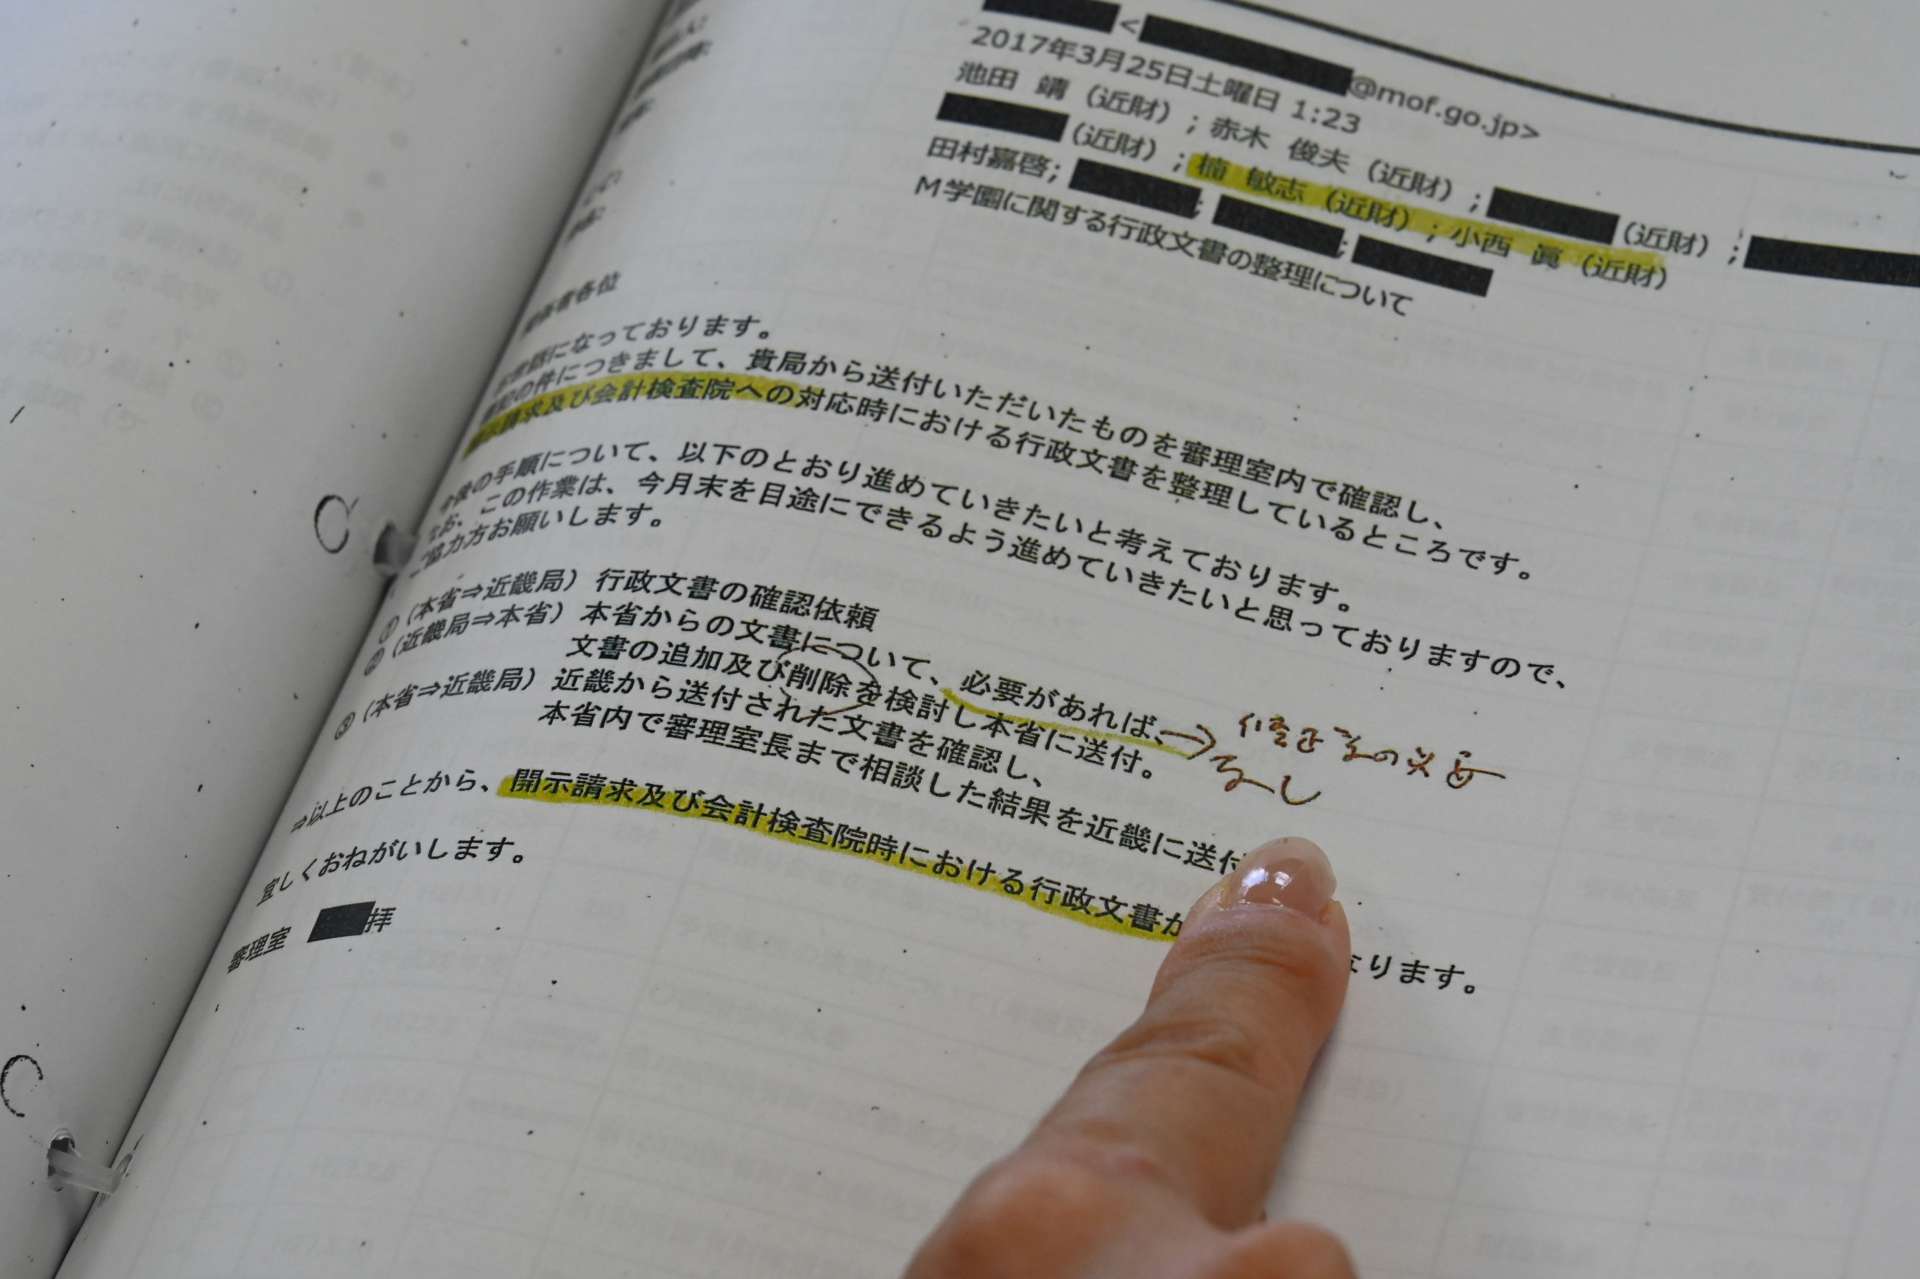 <
@mof.go.jp>
2017年3月25日土曜日 1:23
池田 靖（近財）; 赤木 俊夫（近財）;
（近財）;
（近財）; 楠 敏志（近財）; 小西 眞（近財）
田村嘉啓; ; ;
M学園に関する行政文書の整理について
各位
になっております。
の件につきまして、貴局から送付いただいたものを審理室内で確認し、
請求及び会計検査院への対応時における行政文書を整理しているところです。
今後の手順について、以下のとおり進めていきたいと考えております。
なお、この作業は、今月末を目途にできるよう進めていきたいと思っておりますので、
協力方お願いします。
①（本省⇒近畿局）行政文書の確認依頼
②（近畿局⇒本省）本省からの文書について、必要があれば、
文書の追加及び削除を検討し本省に送付。
→修正等の必要
なし
③（本省⇒近畿局）近畿から送付された文書を確認し、
本省内で審理室長まで相談した結果を近畿に送付
⇒以上のことから、開示請求及び会計検査院時における行政文書が
なります。
宜しくおねがいします。
審理室 拝